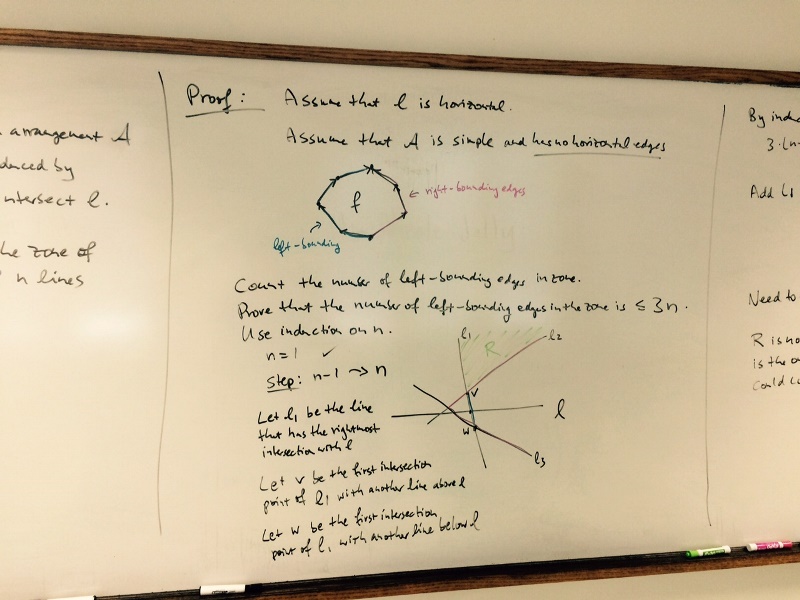 arrangement A
duced by
ntersect l.
he zone of
n lines
Proof:
Assume that l is horizontal.
Assume that A is simple and has no horizontal edges
f
right-bounding edges
left-bounding
Count the number of left-bounding edges in zone.
Prove that the number of left-bounding edges in the zone is ≤ 3n.
Use induction on n.
n=1 ✓
Step: n-1 → n
Let l1 be the line
that has the rightmost
intersection with l
Let v be the first intersection
point of l1 with another line above l
Let w be the first intersection
point of l1 with another line below l
l1
l2
R
v
l
w
l3
By induc
3·(n-
Add l1
Need to
R is no
is the o
could co